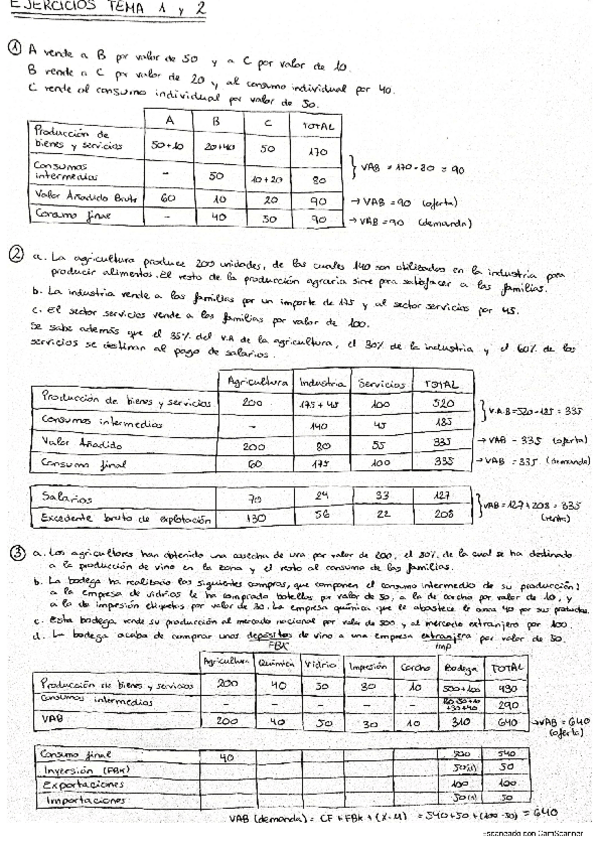 EJERCICIOS TEMA 1 y 2
① A vende a B por valor de 50 y a C por valor de 10.
B vende a C por valor de 20 y al consumo individual por 40.
C vende al consumo individual por valor de 50.
A B C TOTAL
Producción de bienes y servicios 50+10 20+40 50 170
Consumos intermedios - 50 10+20 80
} VAB = 170-80 = 90
Valor Añadido Bruto 60 10 20 90 → VAB = 90 (oferta)
Consumo final - 40 50 90 → VAB = 90 (demanda)
② a. La agricultura produce 200 unidades, de las cuales 140 son utilizadas en la industria para
producir alimentos. El resto de la producción agraria sirve para satisfacer a las familias.
b. La industria vende a las familias por un importe de 175 y al sector servicios por 45.
c. El sector servicios vende a las familias por valor de 100.
Se sabe además que el 35% del V.A de la agricultura, el 30% de la industria y el 60% de los
servicios se destinan al pago de salarios.
Agricultura Industria Servicios TOTAL
Producción de bienes y servicios 200 175+45 100 520
Consumos intermedios - 140 45 185
} V.A.B = 520-185 = 335
Valor Añadido 200 80 55 335 → VAB = 335 (oferta)
Consumo final 60 175 100 335 → VAB = 335 (demanda)
Salarios 70 24 33 127
Excedente bruto de explotación 130 56 22 208
} VAB = 127+208 = 335 (renta)
③ a. Los agricultores han obtenido una cosecha de uva por valor de 200, el 80% de la cual se ha destinado
a la producción de vino en la zona y el resto al consumo de las familias.
b. La bodega ha realizado las siguientes compras, que componen el consumo intermedio de su producción:
a la empresa de vidrios le ha comprado botellas por valor de 50, a la de corcho por valor de 10, y
a la de impresión etiquetas por valor de 30. La empresa química que le abastece le cobra 40 por sus productos.
c. Esta bodega vende su producción al mercado nacional por valor de 500 y al mercado extranjero por 100.
d. La bodega acaba de comprar unos depósitos de vino a una empresa extranjera por valor de 50.
FBK Imp
Agricultura Química Vidrio Impresión Corcho Bodega TOTAL
Producción de bienes y servicios 200 40 50 30 10 500+100 930
Consumos intermedios - - - - - 290
VAB 200 40 50 30 10 310 640 → VAB = 640 (oferta)
Consumo final 40 500 540
Inversión (FBK) 50 50
Exportaciones 100 100
Importaciones 50 50
VAB (demanda) = CF + FBK + (X-M) = 540+50+(100-50) = 640
Escaneado con CamScanner